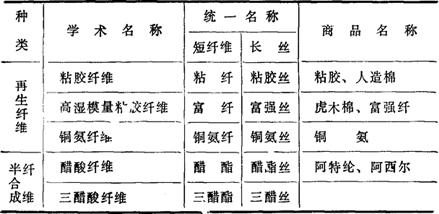 种类 学术名称 统一名称 商品名称
短纤维 长丝
再生纤维 粘胶纤维 粘纤 粘胶丝 粘胶、人造棉
高湿模量粘胶纤维 富纤 富强丝 虎木棉、富强纤
铜氨纤维 铜氨纤 铜氨丝 铜氨
半合成纤维 醋酸纤维 醋酯 醋酯丝 阿特纶、阿西尔
三醋酸纤维 三醋酯 三醋丝